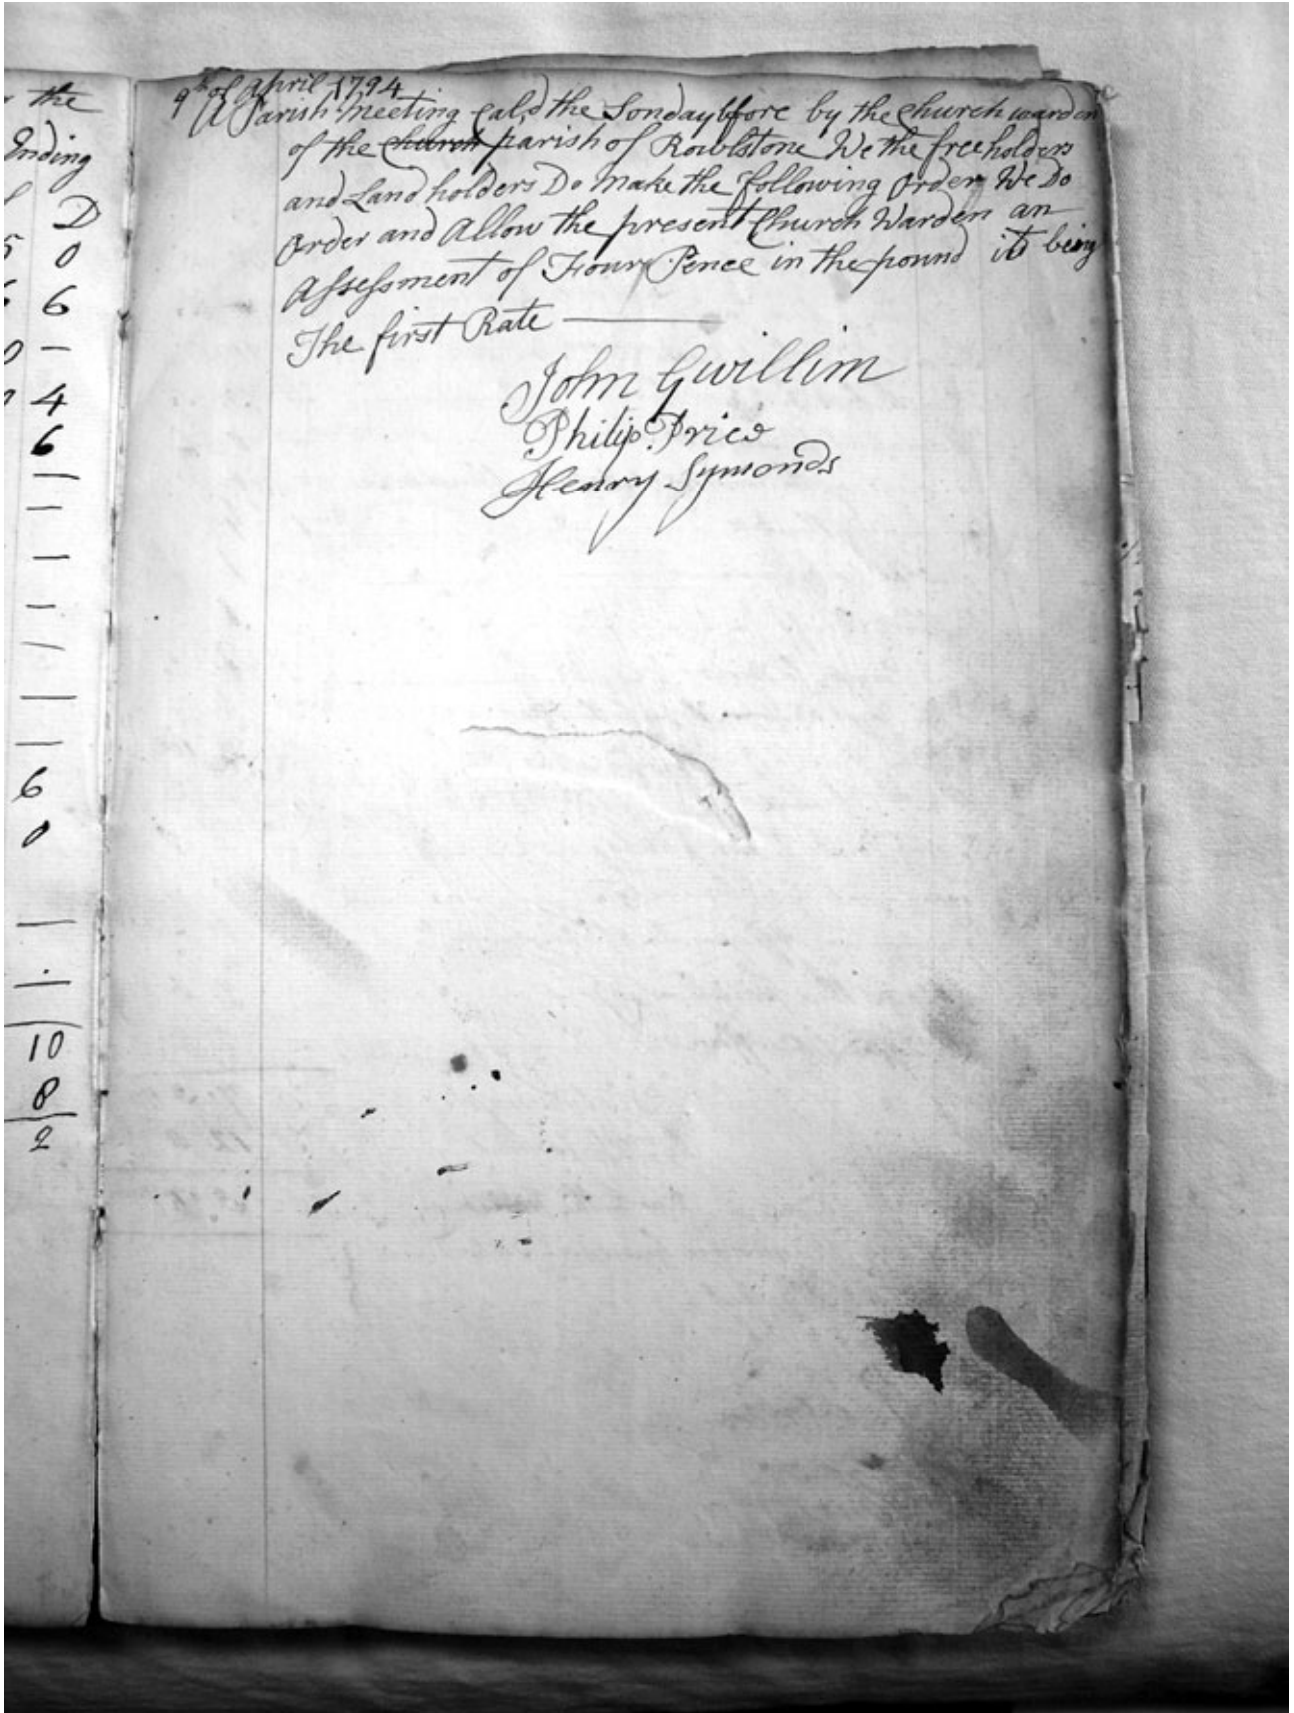 the
Ending
D
5 0
6 6
0 —
4
6
6
0
10
8
2
9th of April 1794
A Parish Meeting Cald the Sonday bfore by the Church warden
of the Church parish of Rowlstone We the freeholders
and Land holders Do Make the following Order We Do
Order and Allow the present Church Warden an
Assessment of Four Pence in the pound it being
The first Rate
John Gwillim
Philip Price
Henry Symonds